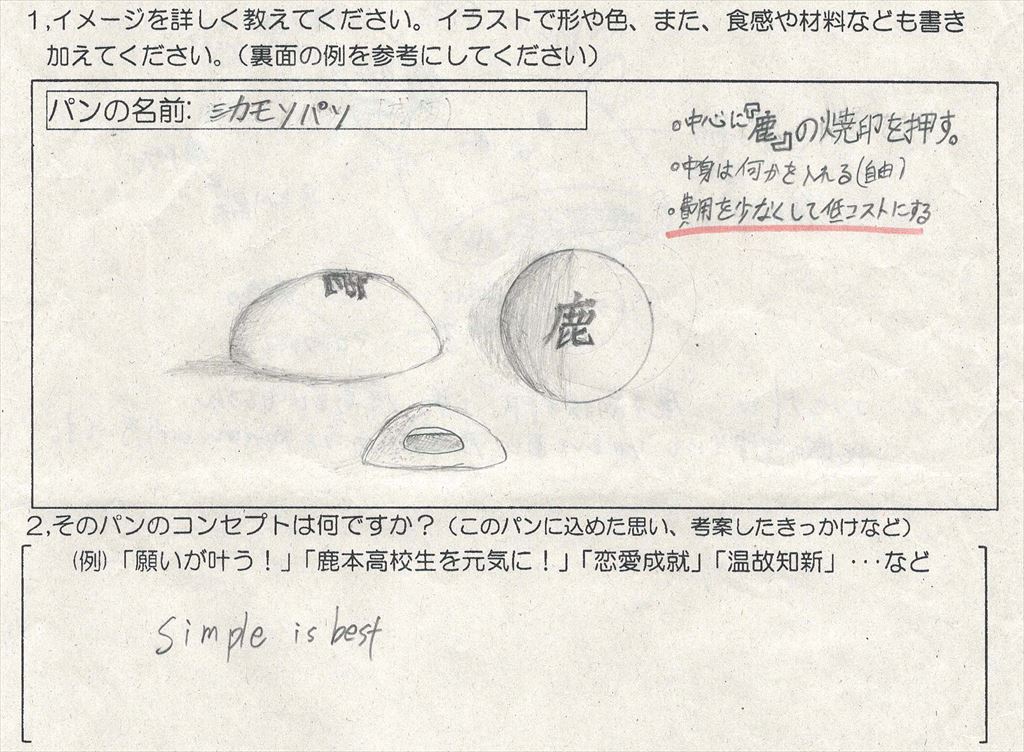 1,イメージを詳しく教えてください。イラストで形や色、また、食感や材料なども書き
加えてください。(裏面の例を参考にしてください)
パンの名前: シカモンパン
○中心に『鹿』の焼印を押す。
○中身は何かを入れる(自由)
○費用を少なくして低コストにする
鹿
2,そのパンのコンセプトは何ですか?(このパンに込めた思い、考案したきっかけなど)
(例)「願いが叶う!」「鹿本高校生を元気に!」「恋愛成就」「温故知新」・・・など
Simple is best